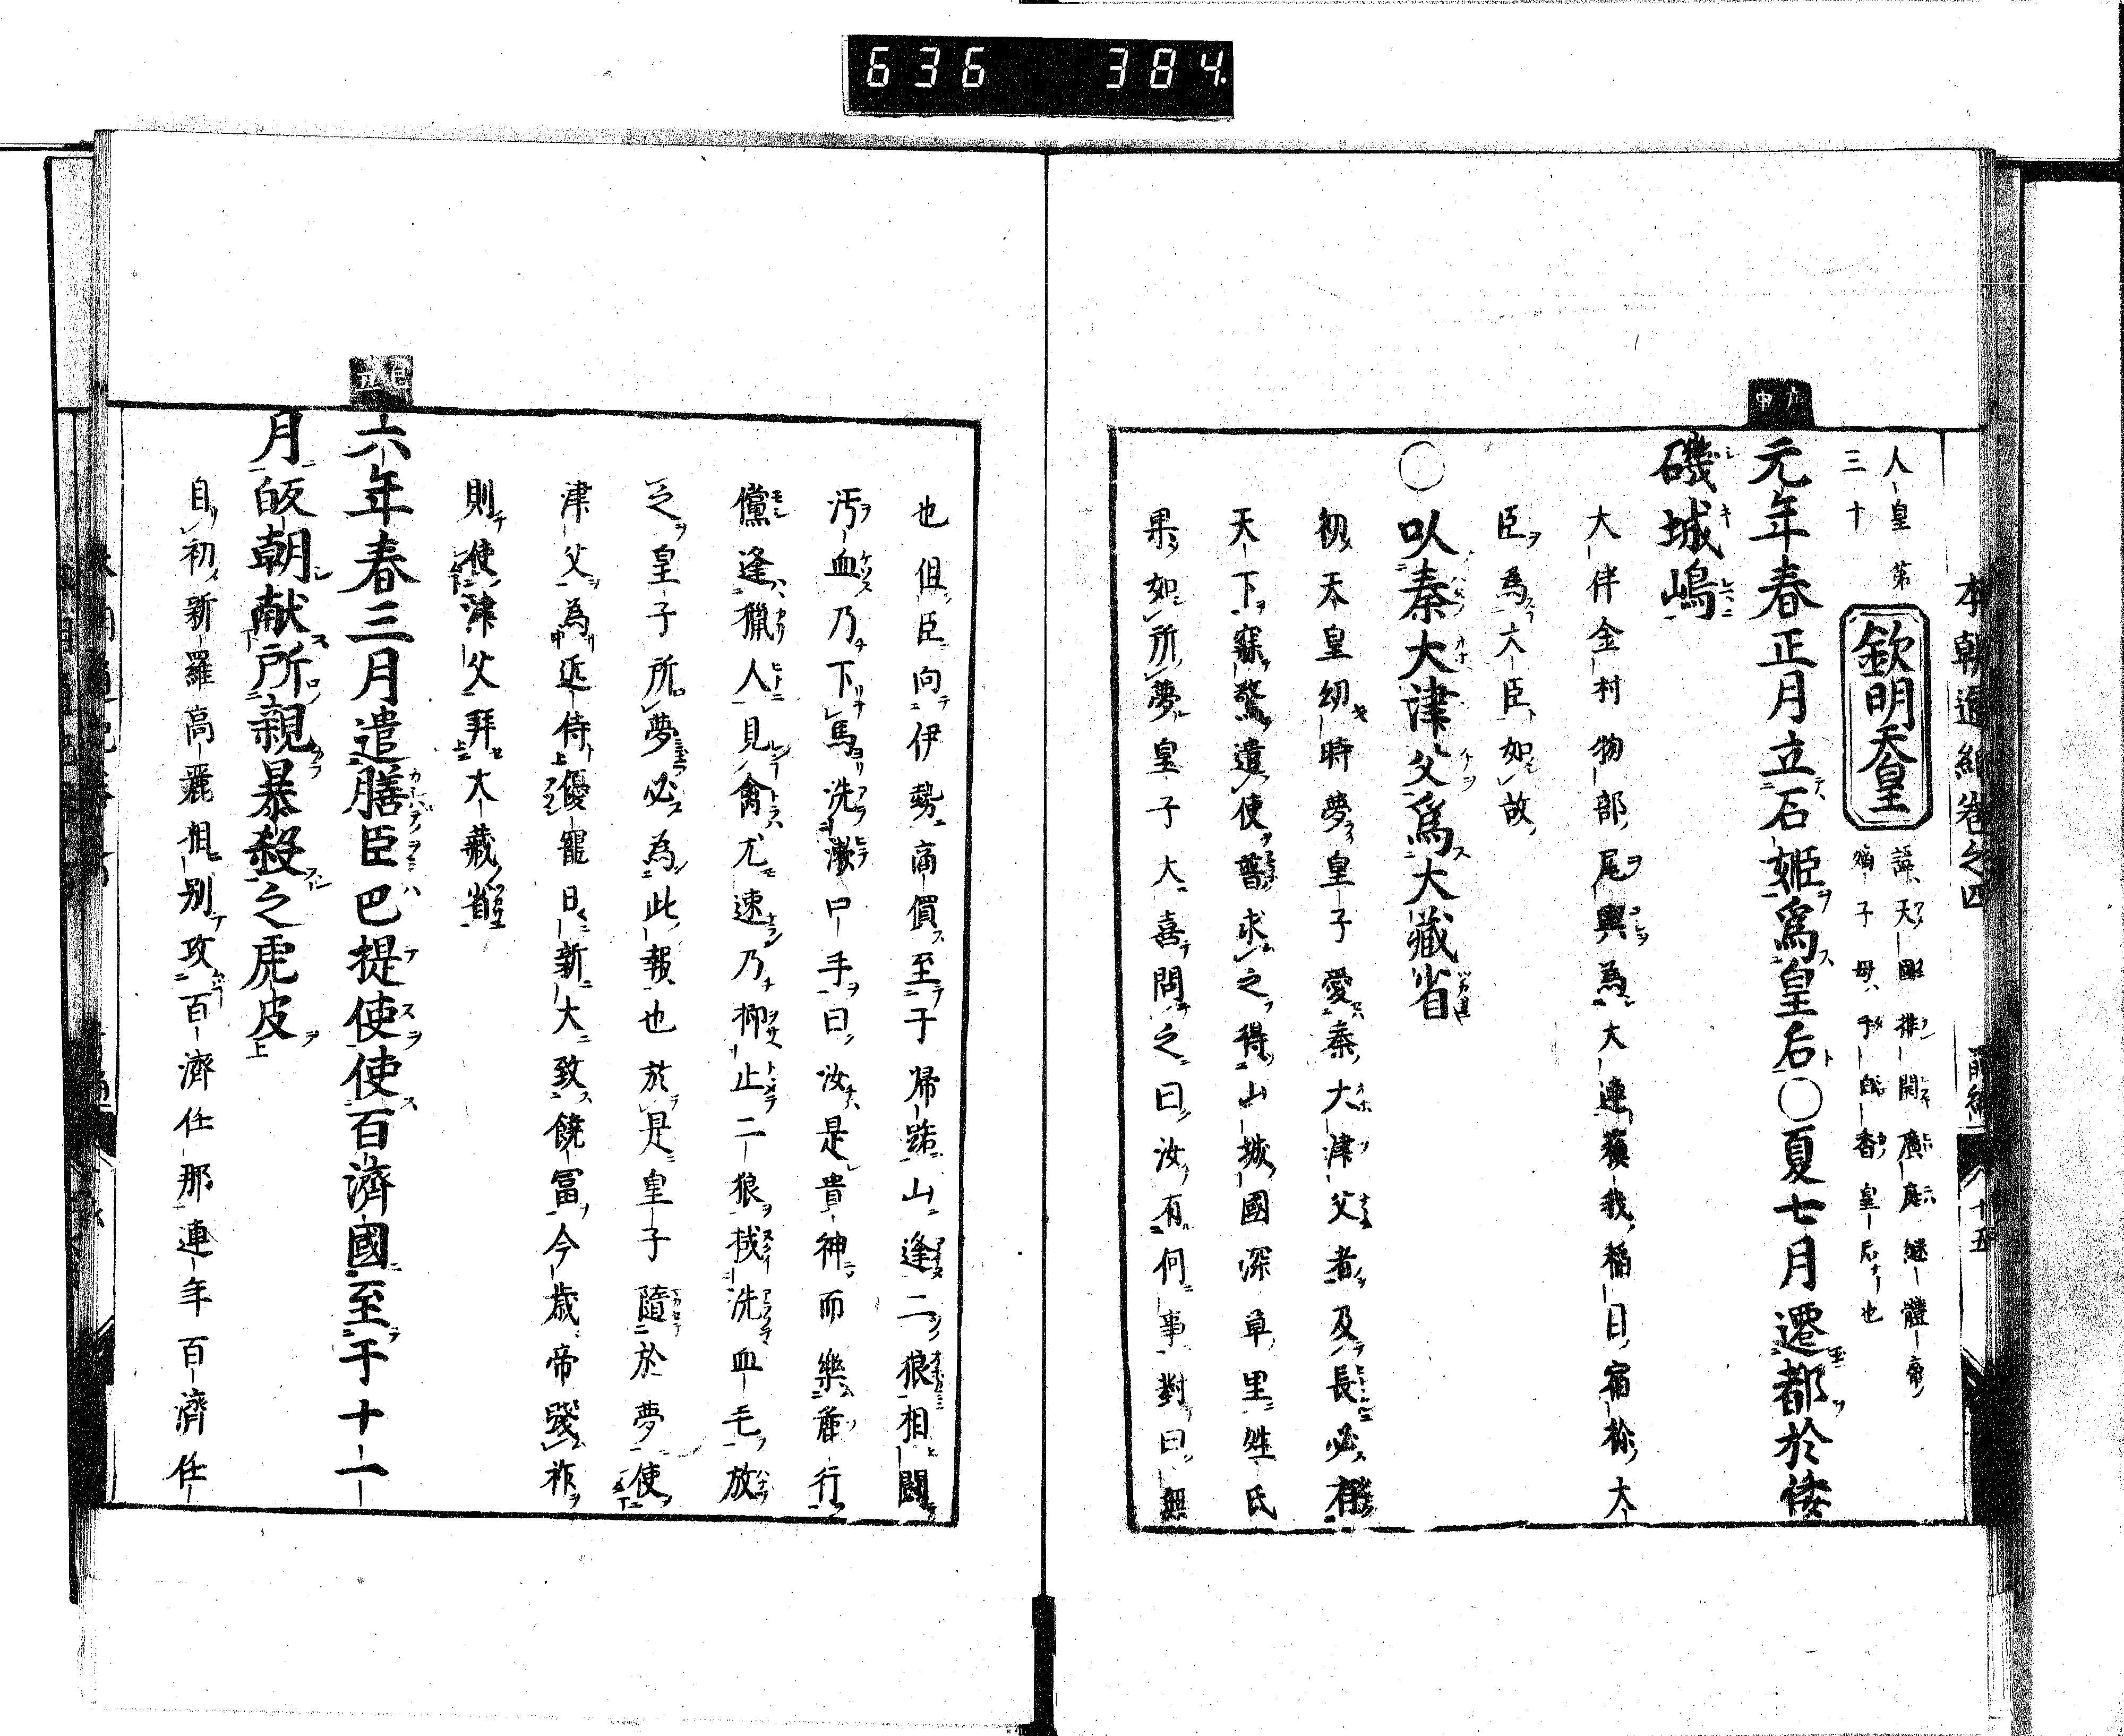 636 384
本朝通紀卷之四 前編 十五
人皇第三十
欽明天皇
諱天國排開廣庭繼體帝
嫡子母手白香皇后也
庚申
元年春正月立石姬爲皇后○夏七月遷都於倭
磯城嶋
大伴金村物部尾輿為大連蘇我稻目宿祢大
臣為大臣如故
○以秦大津父爲大藏省
初天皇幼時夢皇子愛秦大津父者及長必有
天下寤驚遣使普求之得山城國深草里姓氏
果如所夢皇子大喜問之曰汝有何事對曰無
也但臣向伊勢商價至于帰路山逢二狼相闘
汚血乃下馬洗漱口手曰汝是貴神而樂麁行
儻逢獵人見禽尤速乃抑止二狼拭洗血毛放
之皇子所夢必為此報也於是皇子隨於夢使
津父為近侍優寵日新大致饒冨今歳帝踐祚
則使津父拜大藏省
乙丑
六年春三月遣膳臣巴提使使百濟國至于十一
月皈朝献所親暴殺之虎皮
自初新羅高麗相別攻百濟任那連年百濟任